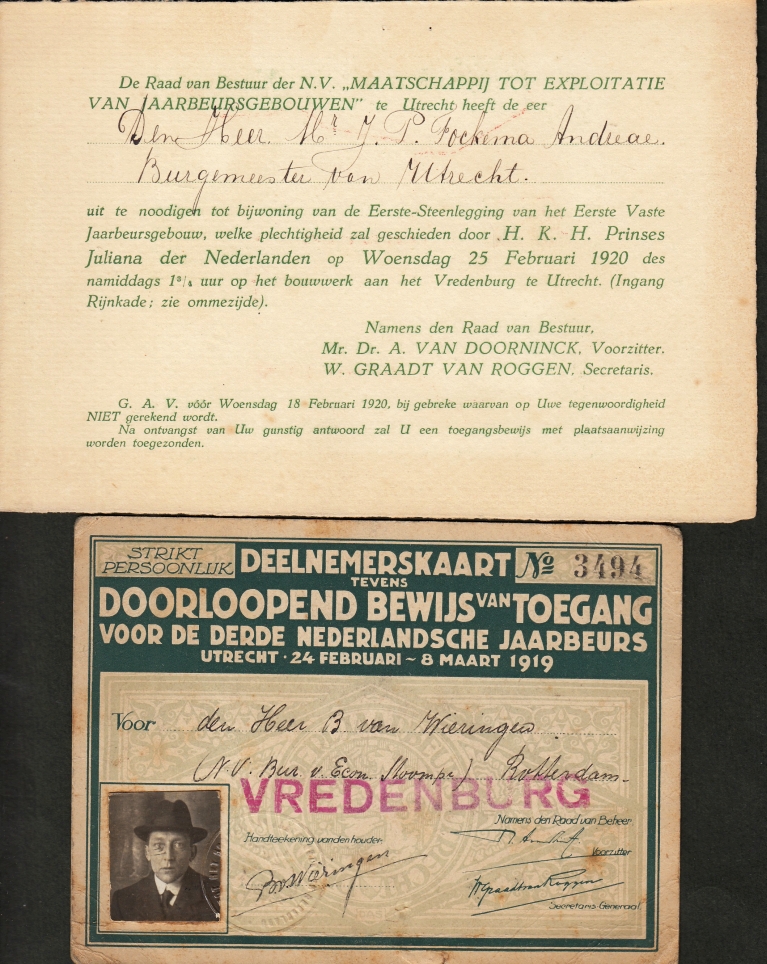 De Raad van Bestuur der N.V. „MAATSCHAPPIJ TOT EXPLOITATIE
VAN JAARBEURSGEBOUWEN” te Utrecht heeft de eer
Den Heer Mr J. P. Fockema Andreae.
Burgemeester van Utrecht.
uit te noodigen tot bijwoning van de Eerste-Steenlegging van het Eerste Vaste
Jaarbeursgebouw, welke plechtigheid zal geschieden door H. K. H. Prinses
Juliana der Nederlanden op Woensdag 25 Februari 1920 des
namiddags 1³/₄ uur op het bouwwerk aan het Vredenburg te Utrecht. (Ingang
Rijnkade; zie ommezijde).
Namens den Raad van Bestuur,
Mr. Dr. A. VAN DOORNINCK, Voorzitter.
W. GRAADT VAN ROGGEN, Secretaris.
G. A. V. vóór Woensdag 18 Februari 1920, bij gebreke waarvan op Uwe tegenwoordigheid
NIET gerekend wordt.
Na ontvangst van Uw gunstig antwoord zal U een toegangsbewijs met plaatsaanwijzing
worden toegezonden.
STRIKT
PERSOONLIJK
DEELNEMERSKAART
No 3494
TEVENS
DOORLOOPEND BEWIJS VAN TOEGANG
VOOR DE DERDE NEDERLANDSCHE JAARBEURS
UTRECHT · 24 FEBRUARI ~ 8 MAART 1919
Voor den Heer B van Wieringen
(N.V. Bur. v. Econ. ) Rotterdam.
VREDENBURG
Handteekening van den houder,
BvWieringen
Namens den Raad van Beheer,
Voorzitter
WGraadtvanRoggen
Secretaris-Generaal.